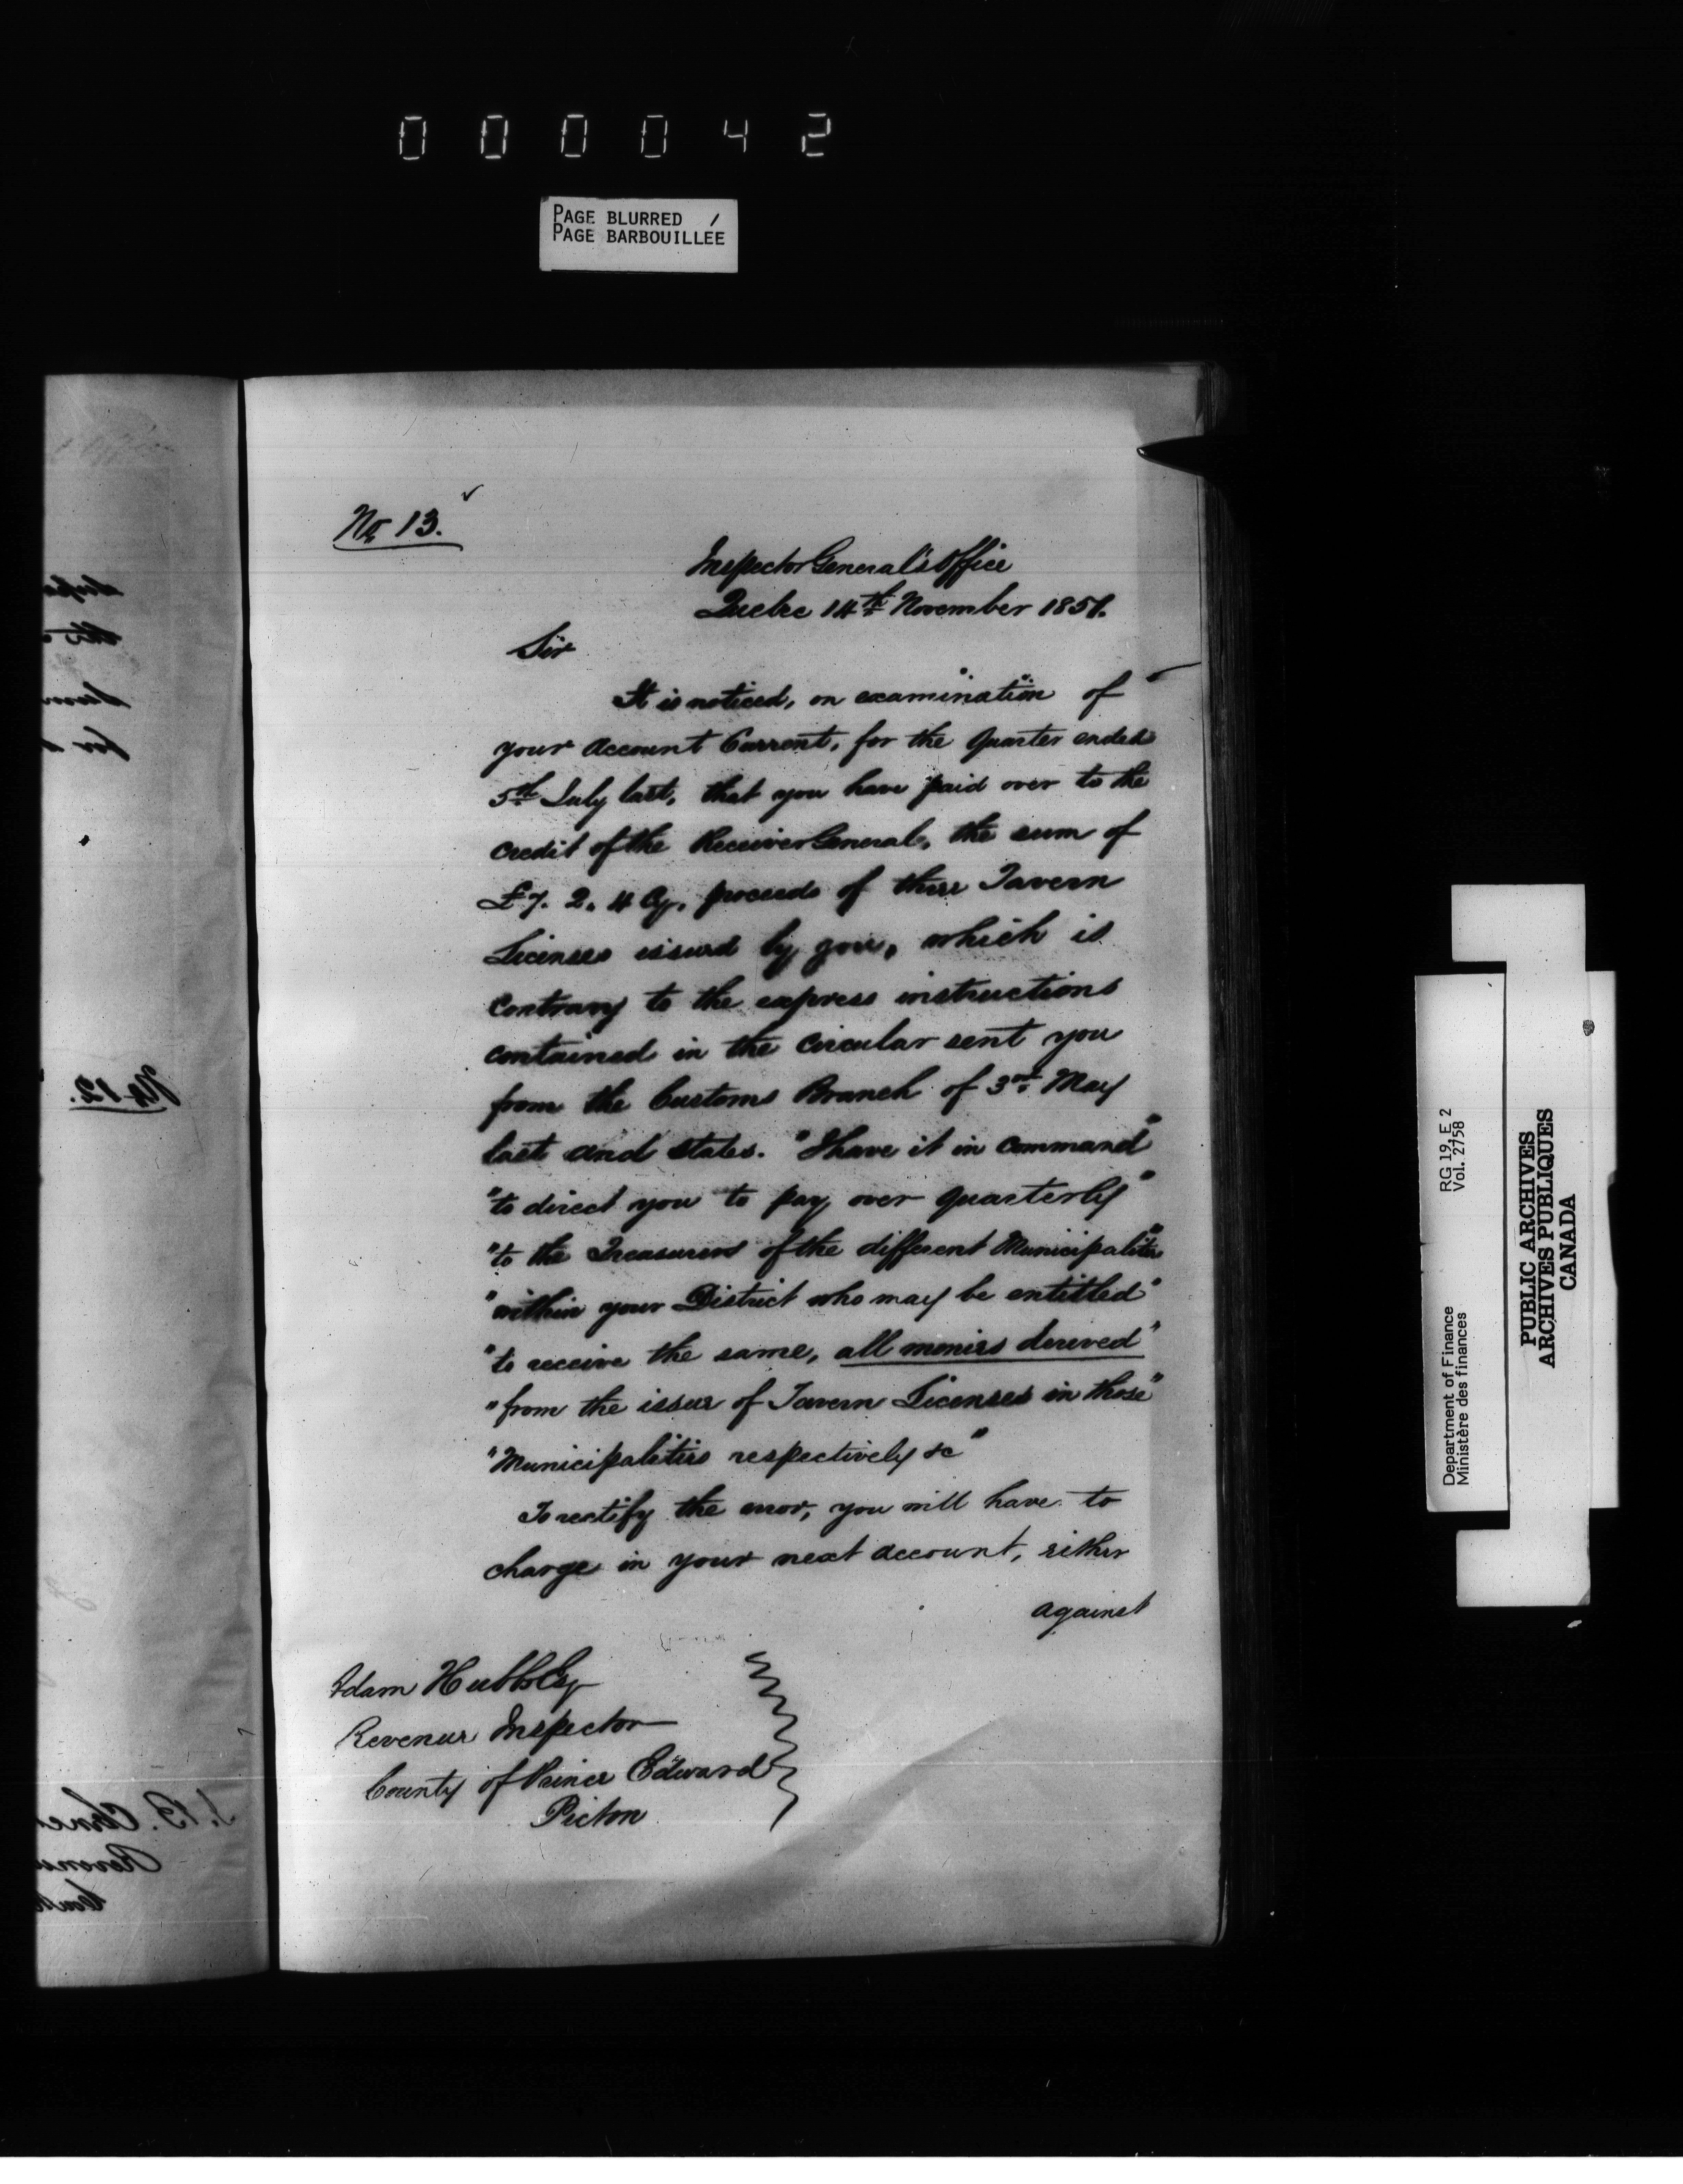 000042
PAGE BLURRED /
PAGE BARBOUILLÉE
No 13.
Inspector General's Office
Quebec 14th November 1851.
Sir
It is noticed, on examination of
your Account Current, for the Quarter ended
5th July last, that you have paid over to the
credit of the Receiver General, the sum of
£7. 2. 4 Cy, proceeds of three Tavern
Licenses issued by you, which is
contrary to the express instructions
contained in the circular sent you
from the Customs Branch of 3rd May
last and states. "I have it in command"
"to direct you to pay over quarterly"
"to the Treasurers of the different Municipalities"
"within your District who may be entitled"
"to receive the same, all monies derived"
"from the issue of Tavern Licenses in those"
"Municipalities respectively &c"
To rectify the error, you will have to
charge in your next account, either
against
Adam Hubbs Esq
Revenue Inspector
County of Prince Edward
Picton
No 12.
Department of Finance
Ministère des finances
RG 19, E 2
Vol. 2758
PUBLIC ARCHIVES
ARCHIVES PUBLIQUES
CANADA